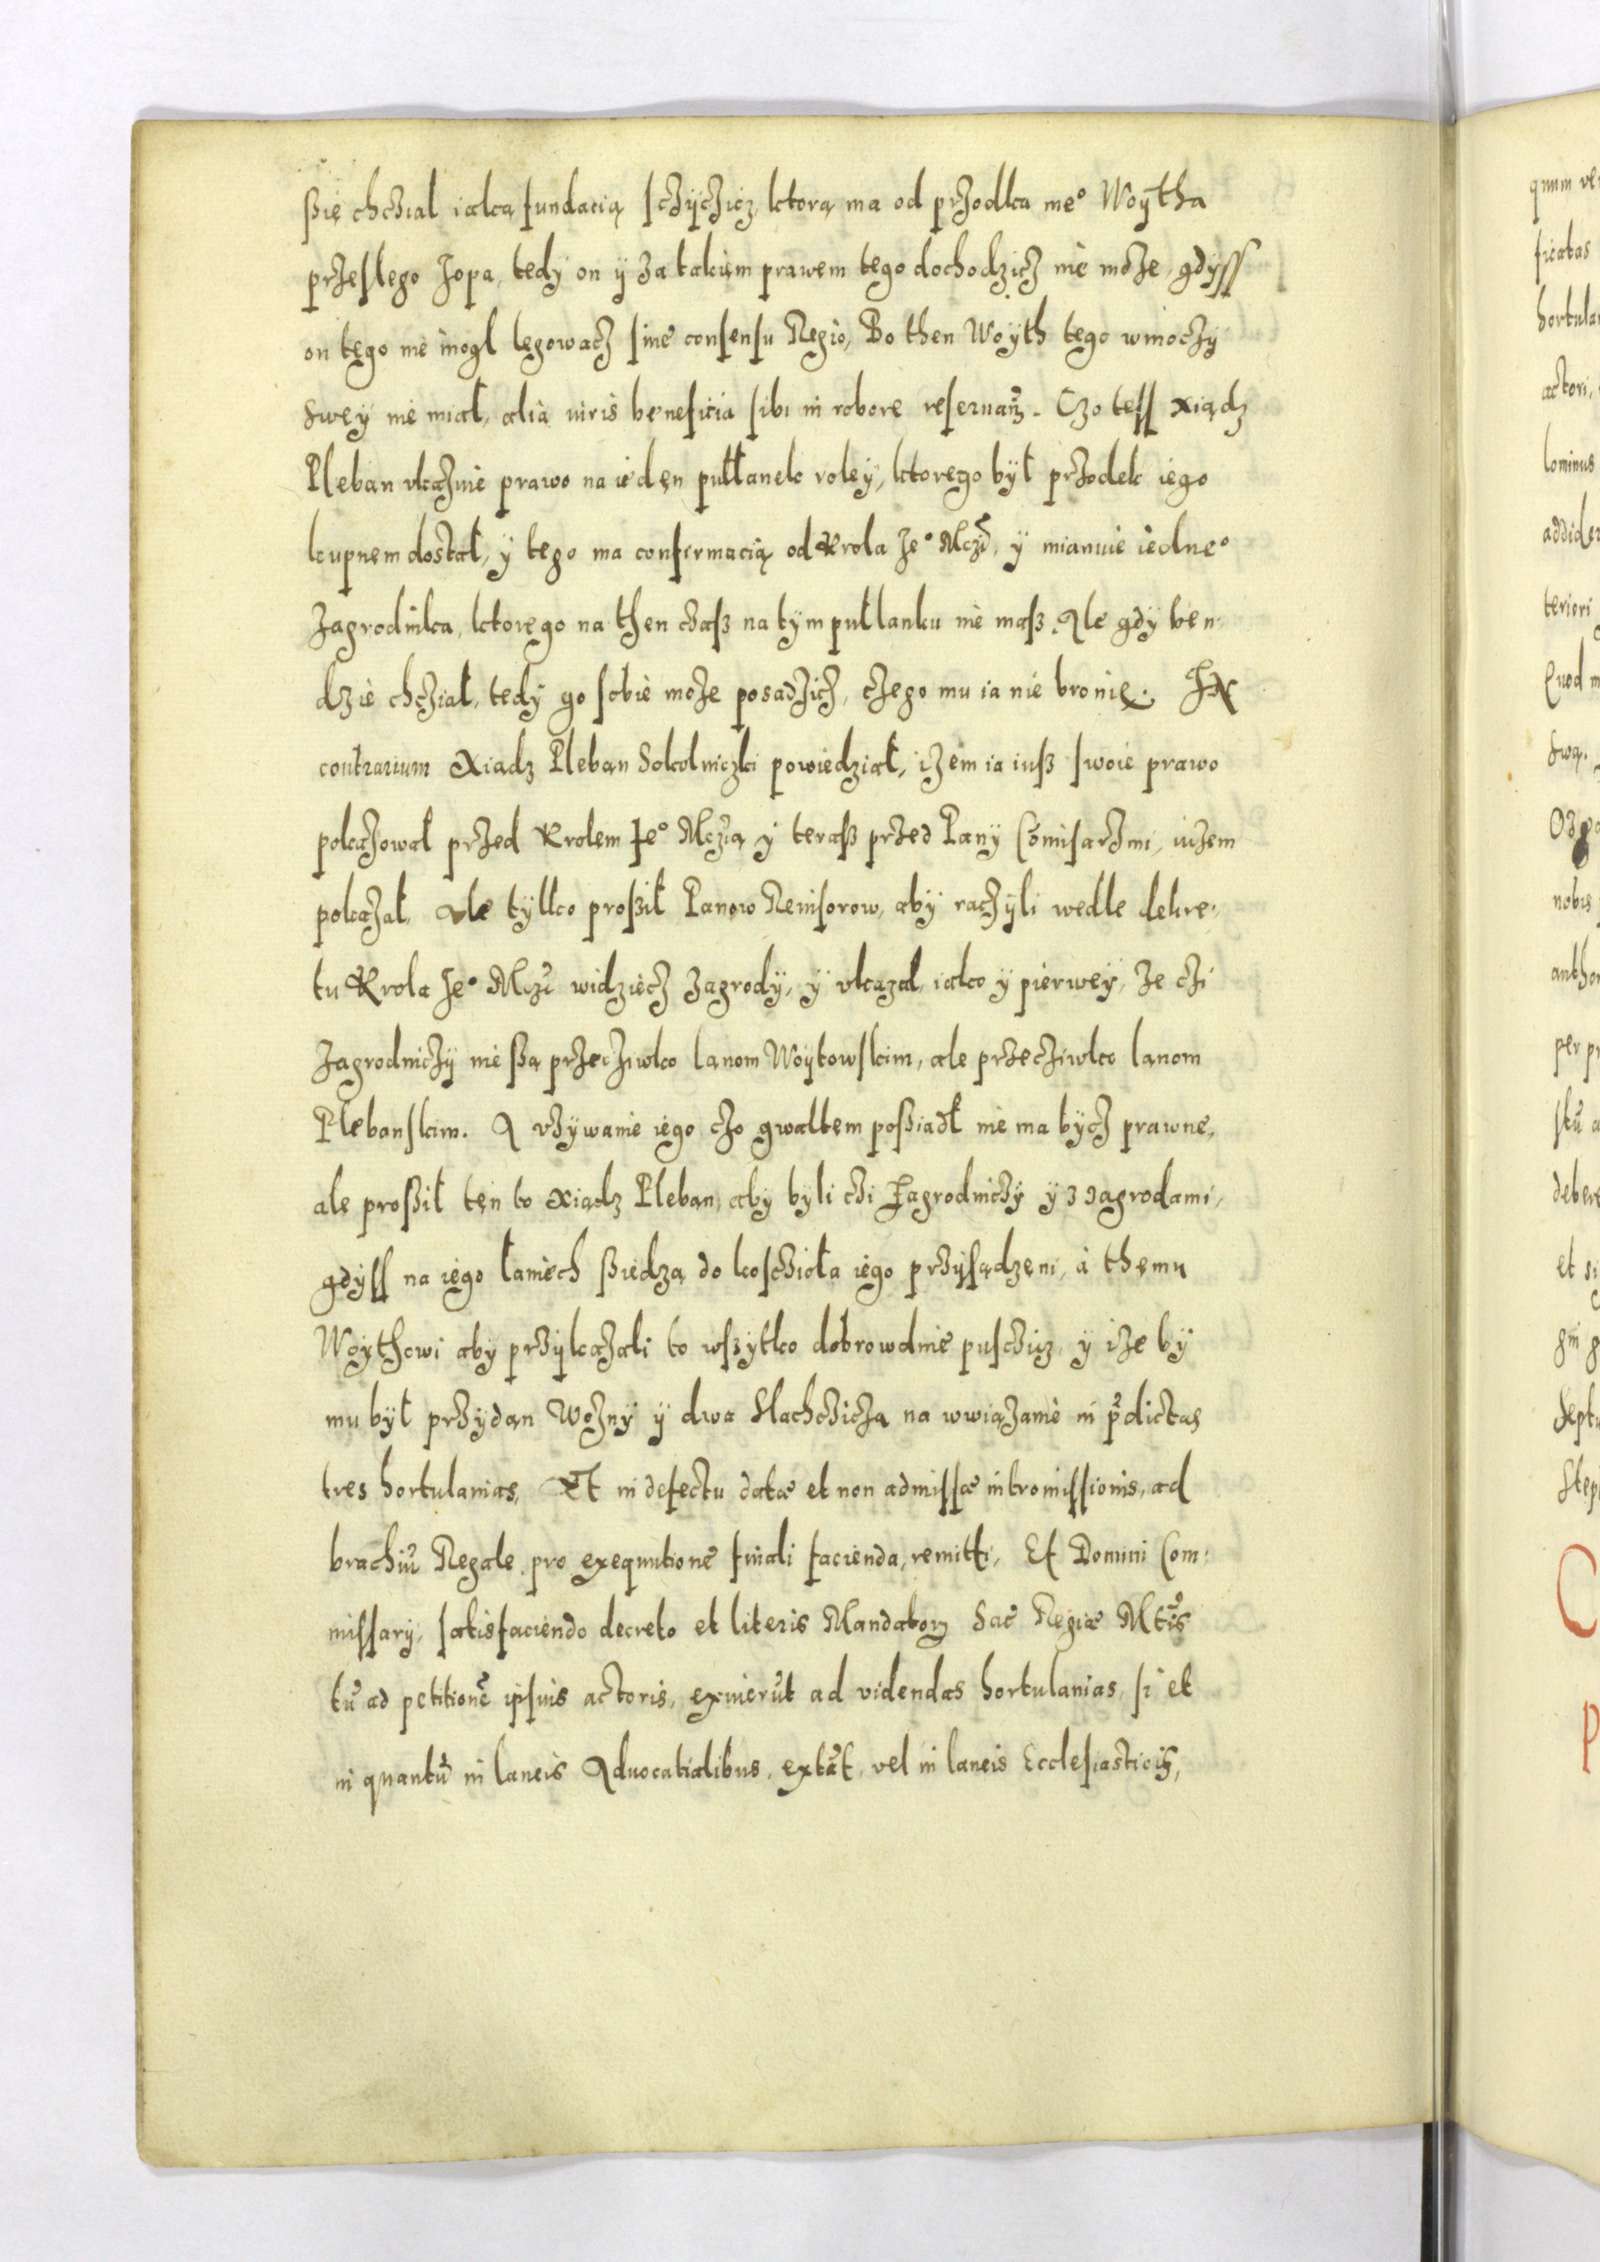 ßię chczial iaką fundacią sczyczicz, ktorą ma od przodka me° Woytha
przeslego Jopa, tedy on y za takiem prawem tego dochodzicz nie może, gdyss
on tego nie mogl legowacz sine consensu Regio, Bo then Woyth tego wmoczy
swey nie miał, alia iuris beneficia sibi in robore reseruan̄. Czo tess xiądz
Pleban vkaznie prawo na ieden pułłanek roley, ktorego był przodek iego
kupnem dostał, y tego ma confirmacią od Krola Je° Mczi, y mianuie iedne°
Zagrodnika, ktorego na then czaß na tym pułlanku nie maß. Ale gdy ben-
dzie chcział, tedy go sobie może posadzicz, czego mu ia nie bronię. IN
contrarium Xiadz Pleban Sokolniczki powiedział, iżem ia iuß swoie prawo
pokazował przed Krolem Je° Mczią y teraß przed Pany Comisarzmi, iużem
pokazał. Ale tylko proßił Panow Reuisorow, aby raczyli wedle dekre-
tu Krola Je° Mczi widziecz Zagrody, y vkazal, iako y pierwey, że czi
Zagrodniczy nie ßą przecziwko lanom Woytowskim, ale przecziwko lanom
Plebanskim. A vżywanie iego czo gwałtem poßiadł nie ma bycz prawne,
ale proßił ten to xiądz Pleban, aby byli czi Zagrodniczy y z zagrodami,
gdyss na iego łaniech ßiedzą do kosczioła iego przysądzeni, a themu
Woythowi aby przykazali to wszytko dobrowolnie pusczicz, y iże by
mu był przydan Woźny y dwa Slachczicza na wwiązanie in p̄dictas
tres hortulanias, Et in defectu datæ et non admissæ intromissionis, ad
brachiū Regale pro exequutione finali facienda, remitti. Et Domini Com-
missary, satisfaciendo decreto et literis Mandatorꝝ Sac̄ Regiæ Mt̄is
tū ad petitionē ipsius actoris, exierūt ad videndas hortulanias, si et
in quantū in laneis Aduocatialibus, extāt, vel in laneis Ecclesiasticis,